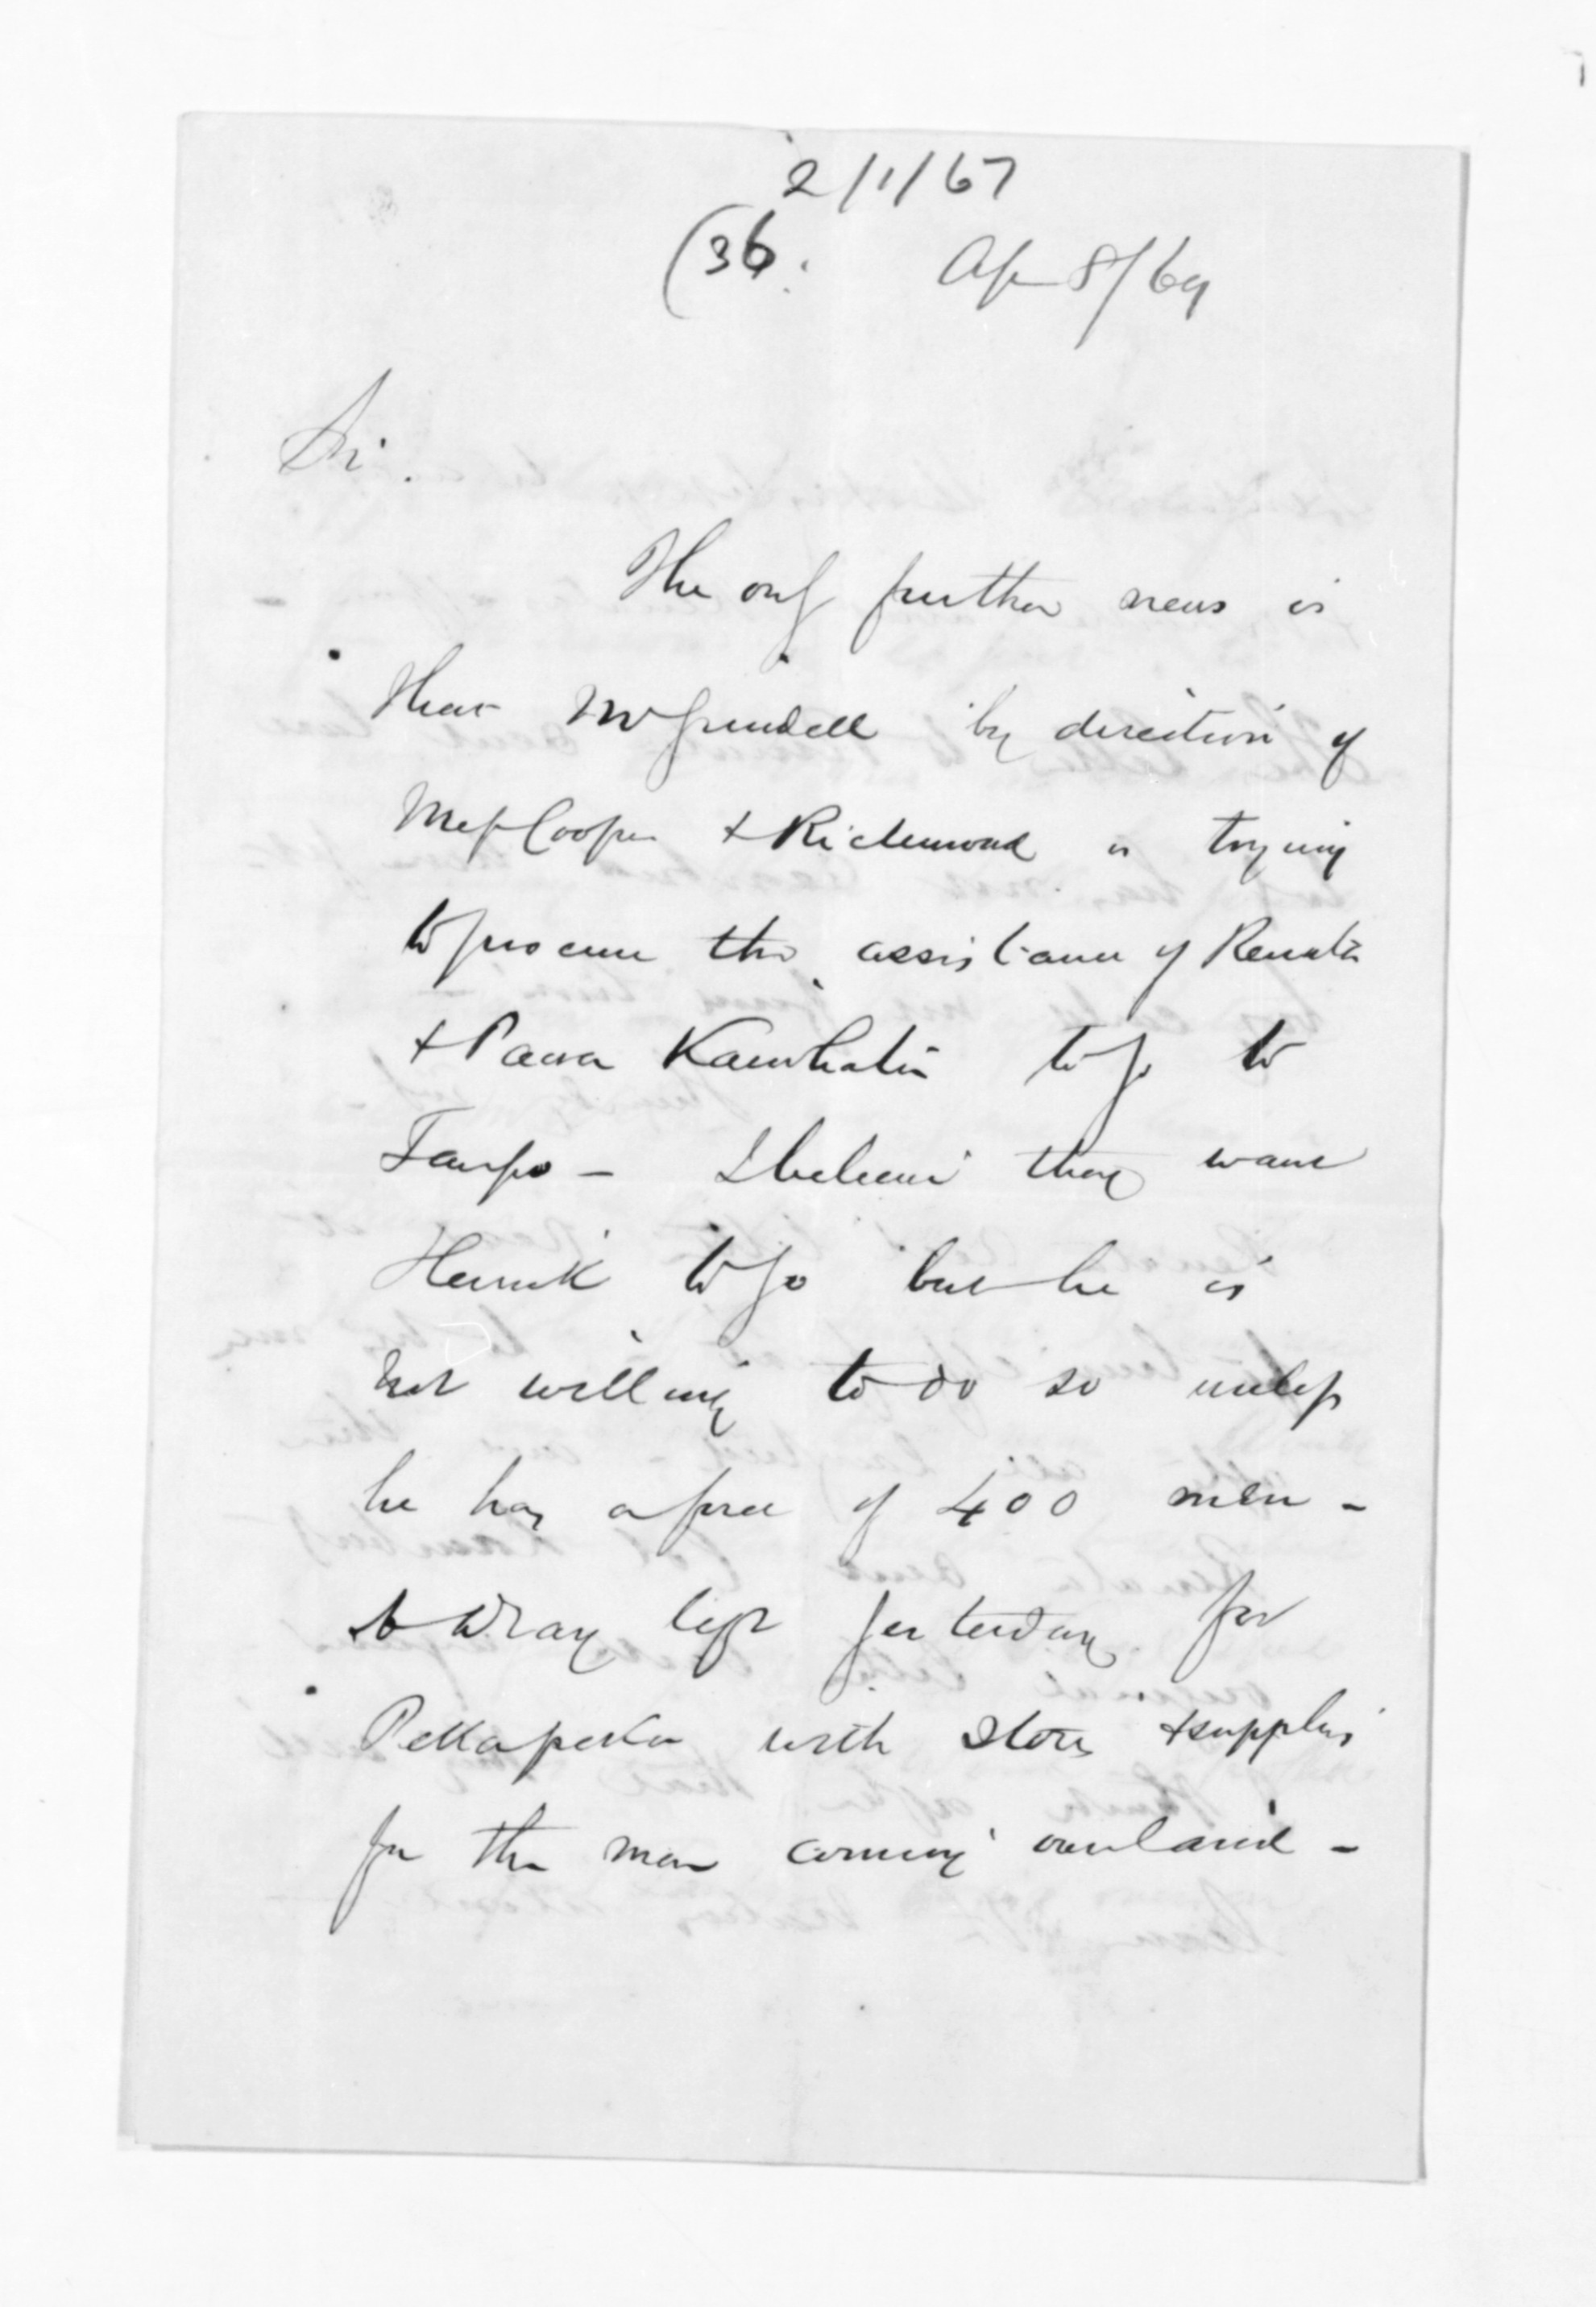 2/1/67
(36. Ap 8/69
Sir.
The only further news is
that Mr Grindell by direction of
Messrs Cooper & Richmond is trying
to procure the assistance of Renata
& Paora Kaiwhata to go to
Taupo - I believe they want
Henrik to go but he is
not willing to do so unless
he has a force of 400 men -
St Wray left yesterday for
Pettapeka with stores & supplies
for the men coming overland -